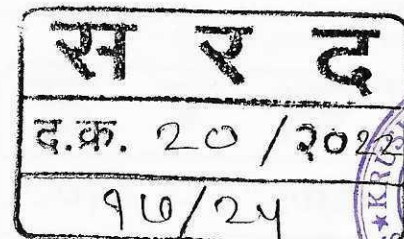 स र द
द.क्र. २० /२०२२
१७/२५